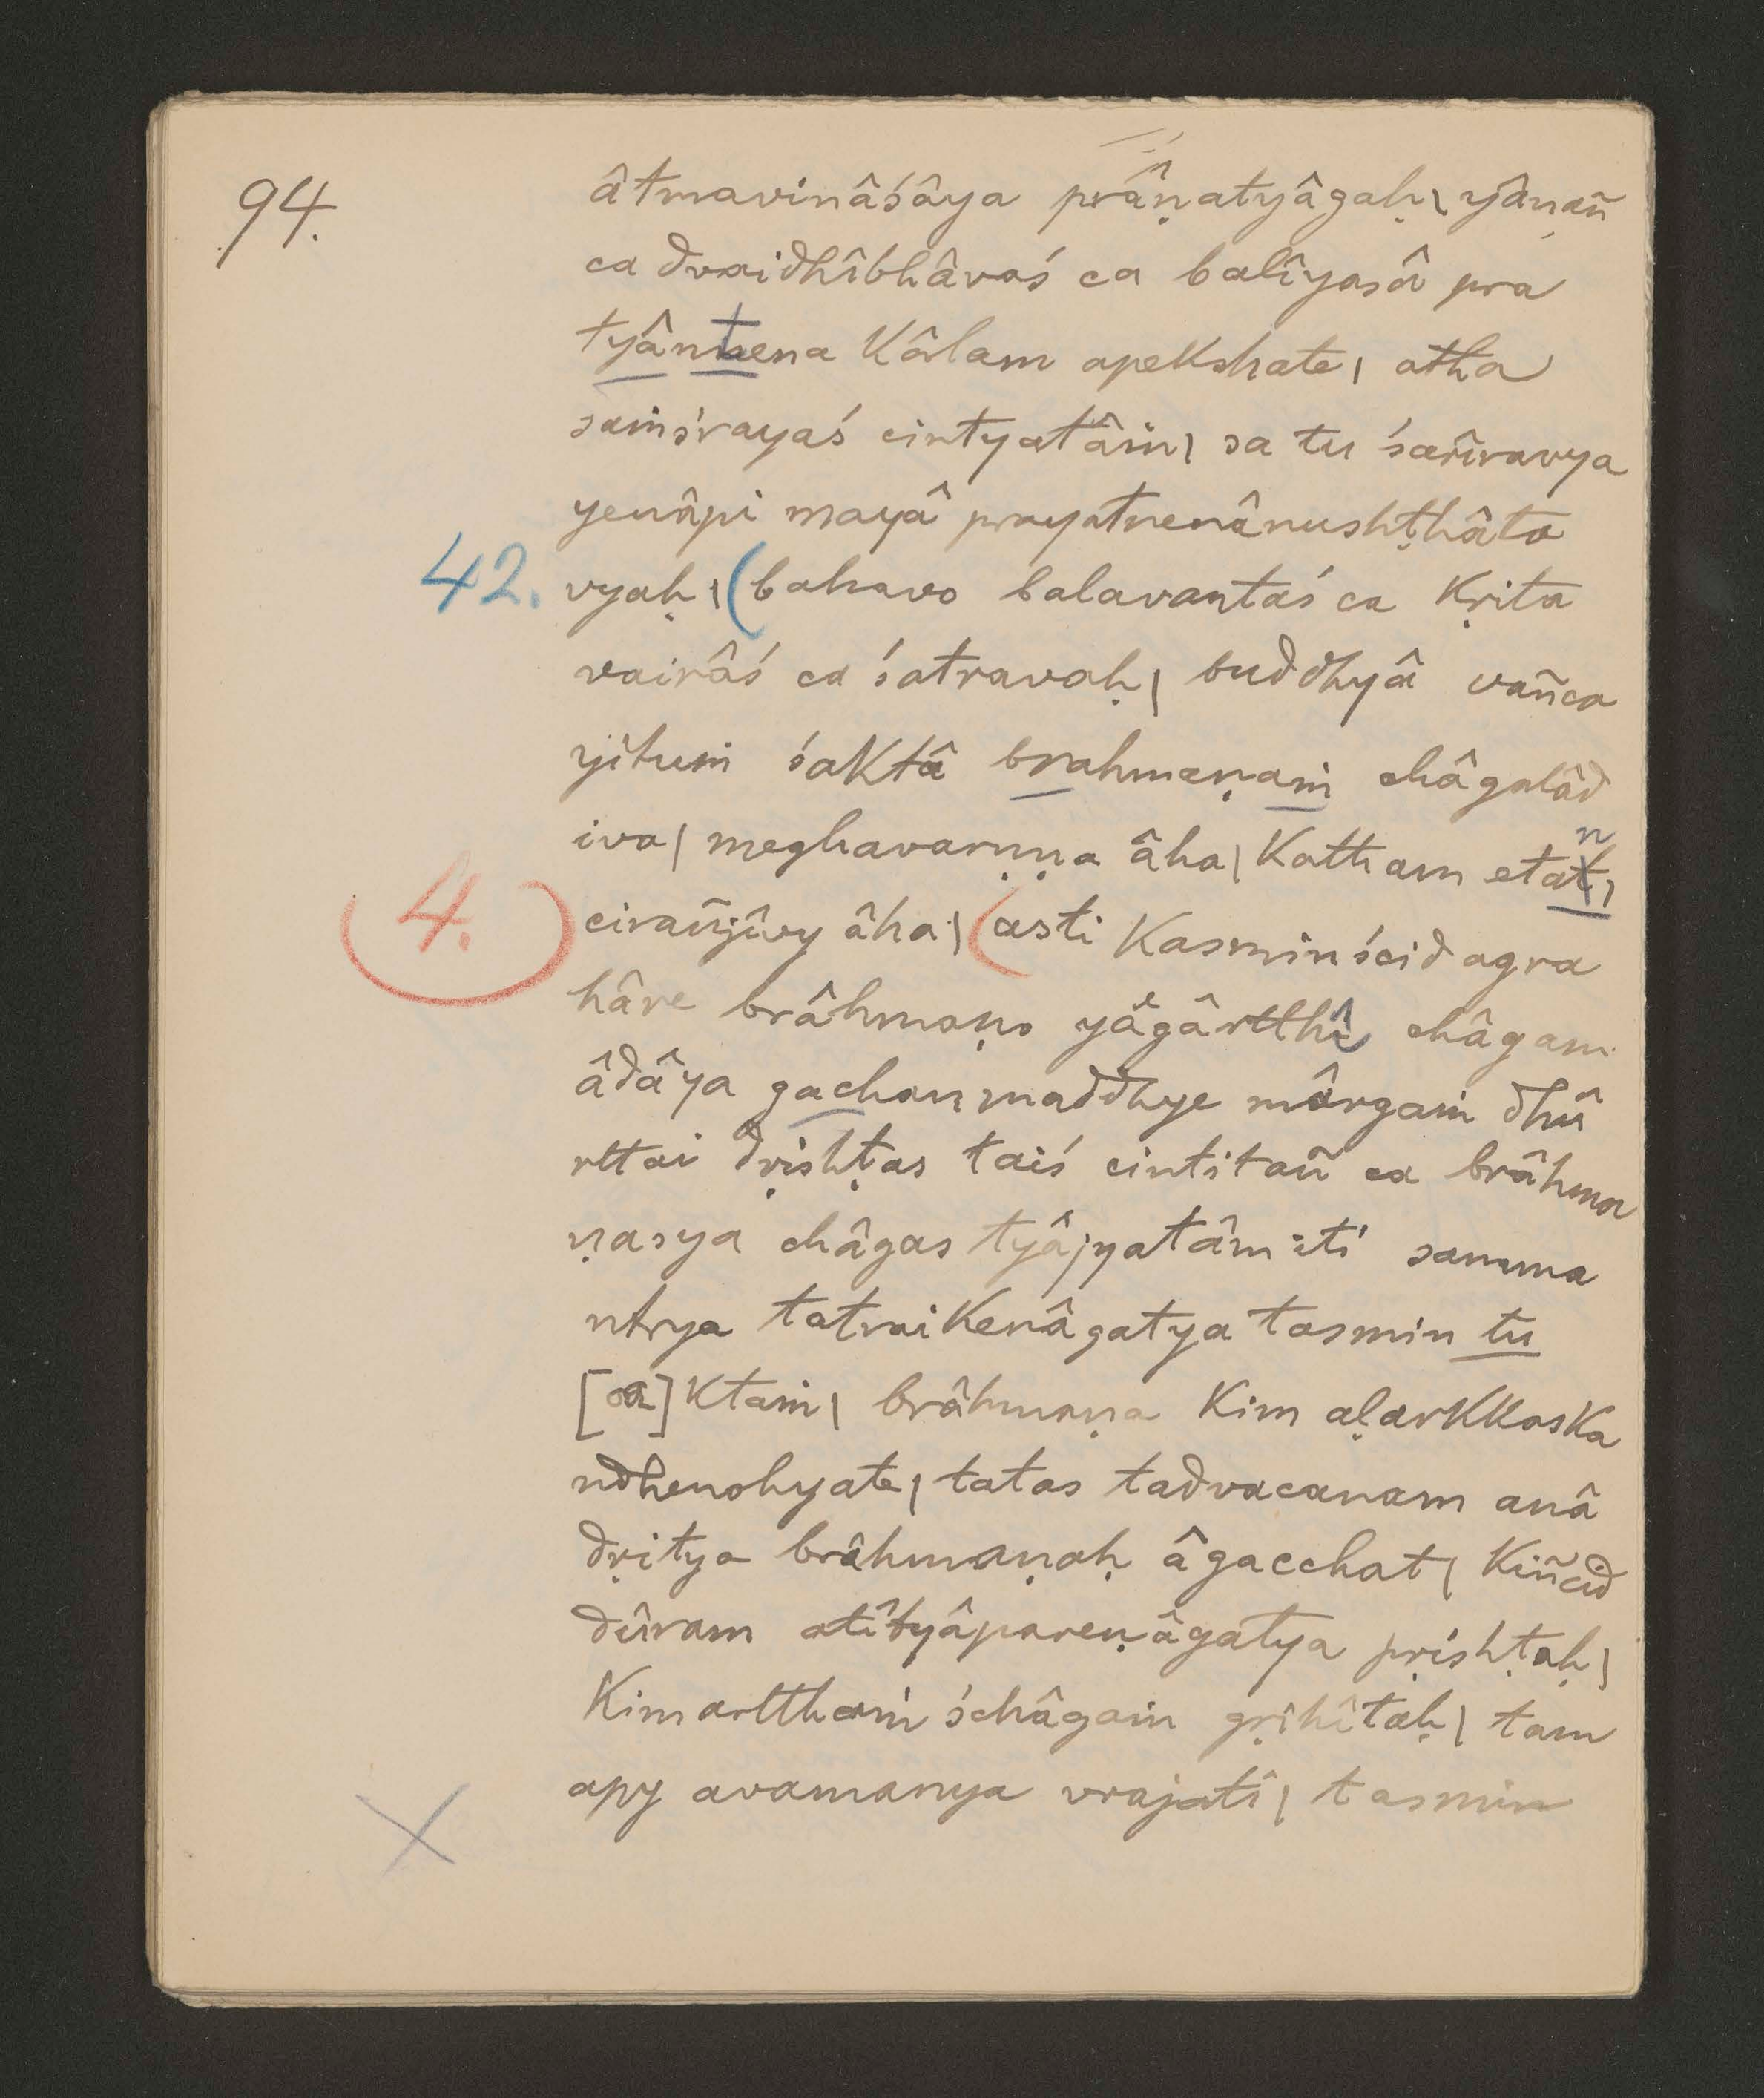 94.
âtmavinâśâya prâṇatyâgaḥ| yânañ
ca dvaidhîbhâvaś ca balîyasâ pra
tyântena kâlam apekshate| atha
saṁśrayaś cintyatâṁ| sa tu śarîravya
yenâpi mayâ prayatnenânushṭhâta
42. vyaḥ| (bahavo balavantaś ca kṛita
vairâś ca śatravaḥ| buddhyâ vañca
yituṁ śaktâ brahmaṇaṁ châgalâd
iva| meghavarṇṇa âha| katham etat|
n
4. cirañjîvy âha| (asti kasminścid agra
hâre brâhmaṇo yâgârtthî châgam
âdâya gachan maddhye mârgaṁ dhû
rttai dṛishṭas taiś cintitañ ca brâhma
ṇasya châgas tyâjyatâm iti samma
ntrya tatraikenâgatya tasmin tu
[oa]ktaṁ| brâhmaṇa kim aḷarkkaska
ndhenohyate| tatas tadvacanam anâ
dṛitya brâhmaṇaḥ âgacchat| kiñcid
dûram atîtyâpareṇâgatya pṛishṭaḥ|
kimartthaṁ śchâgaṁ gṛihîtaḥ| tam
apy avamanya vrajati| tasmin